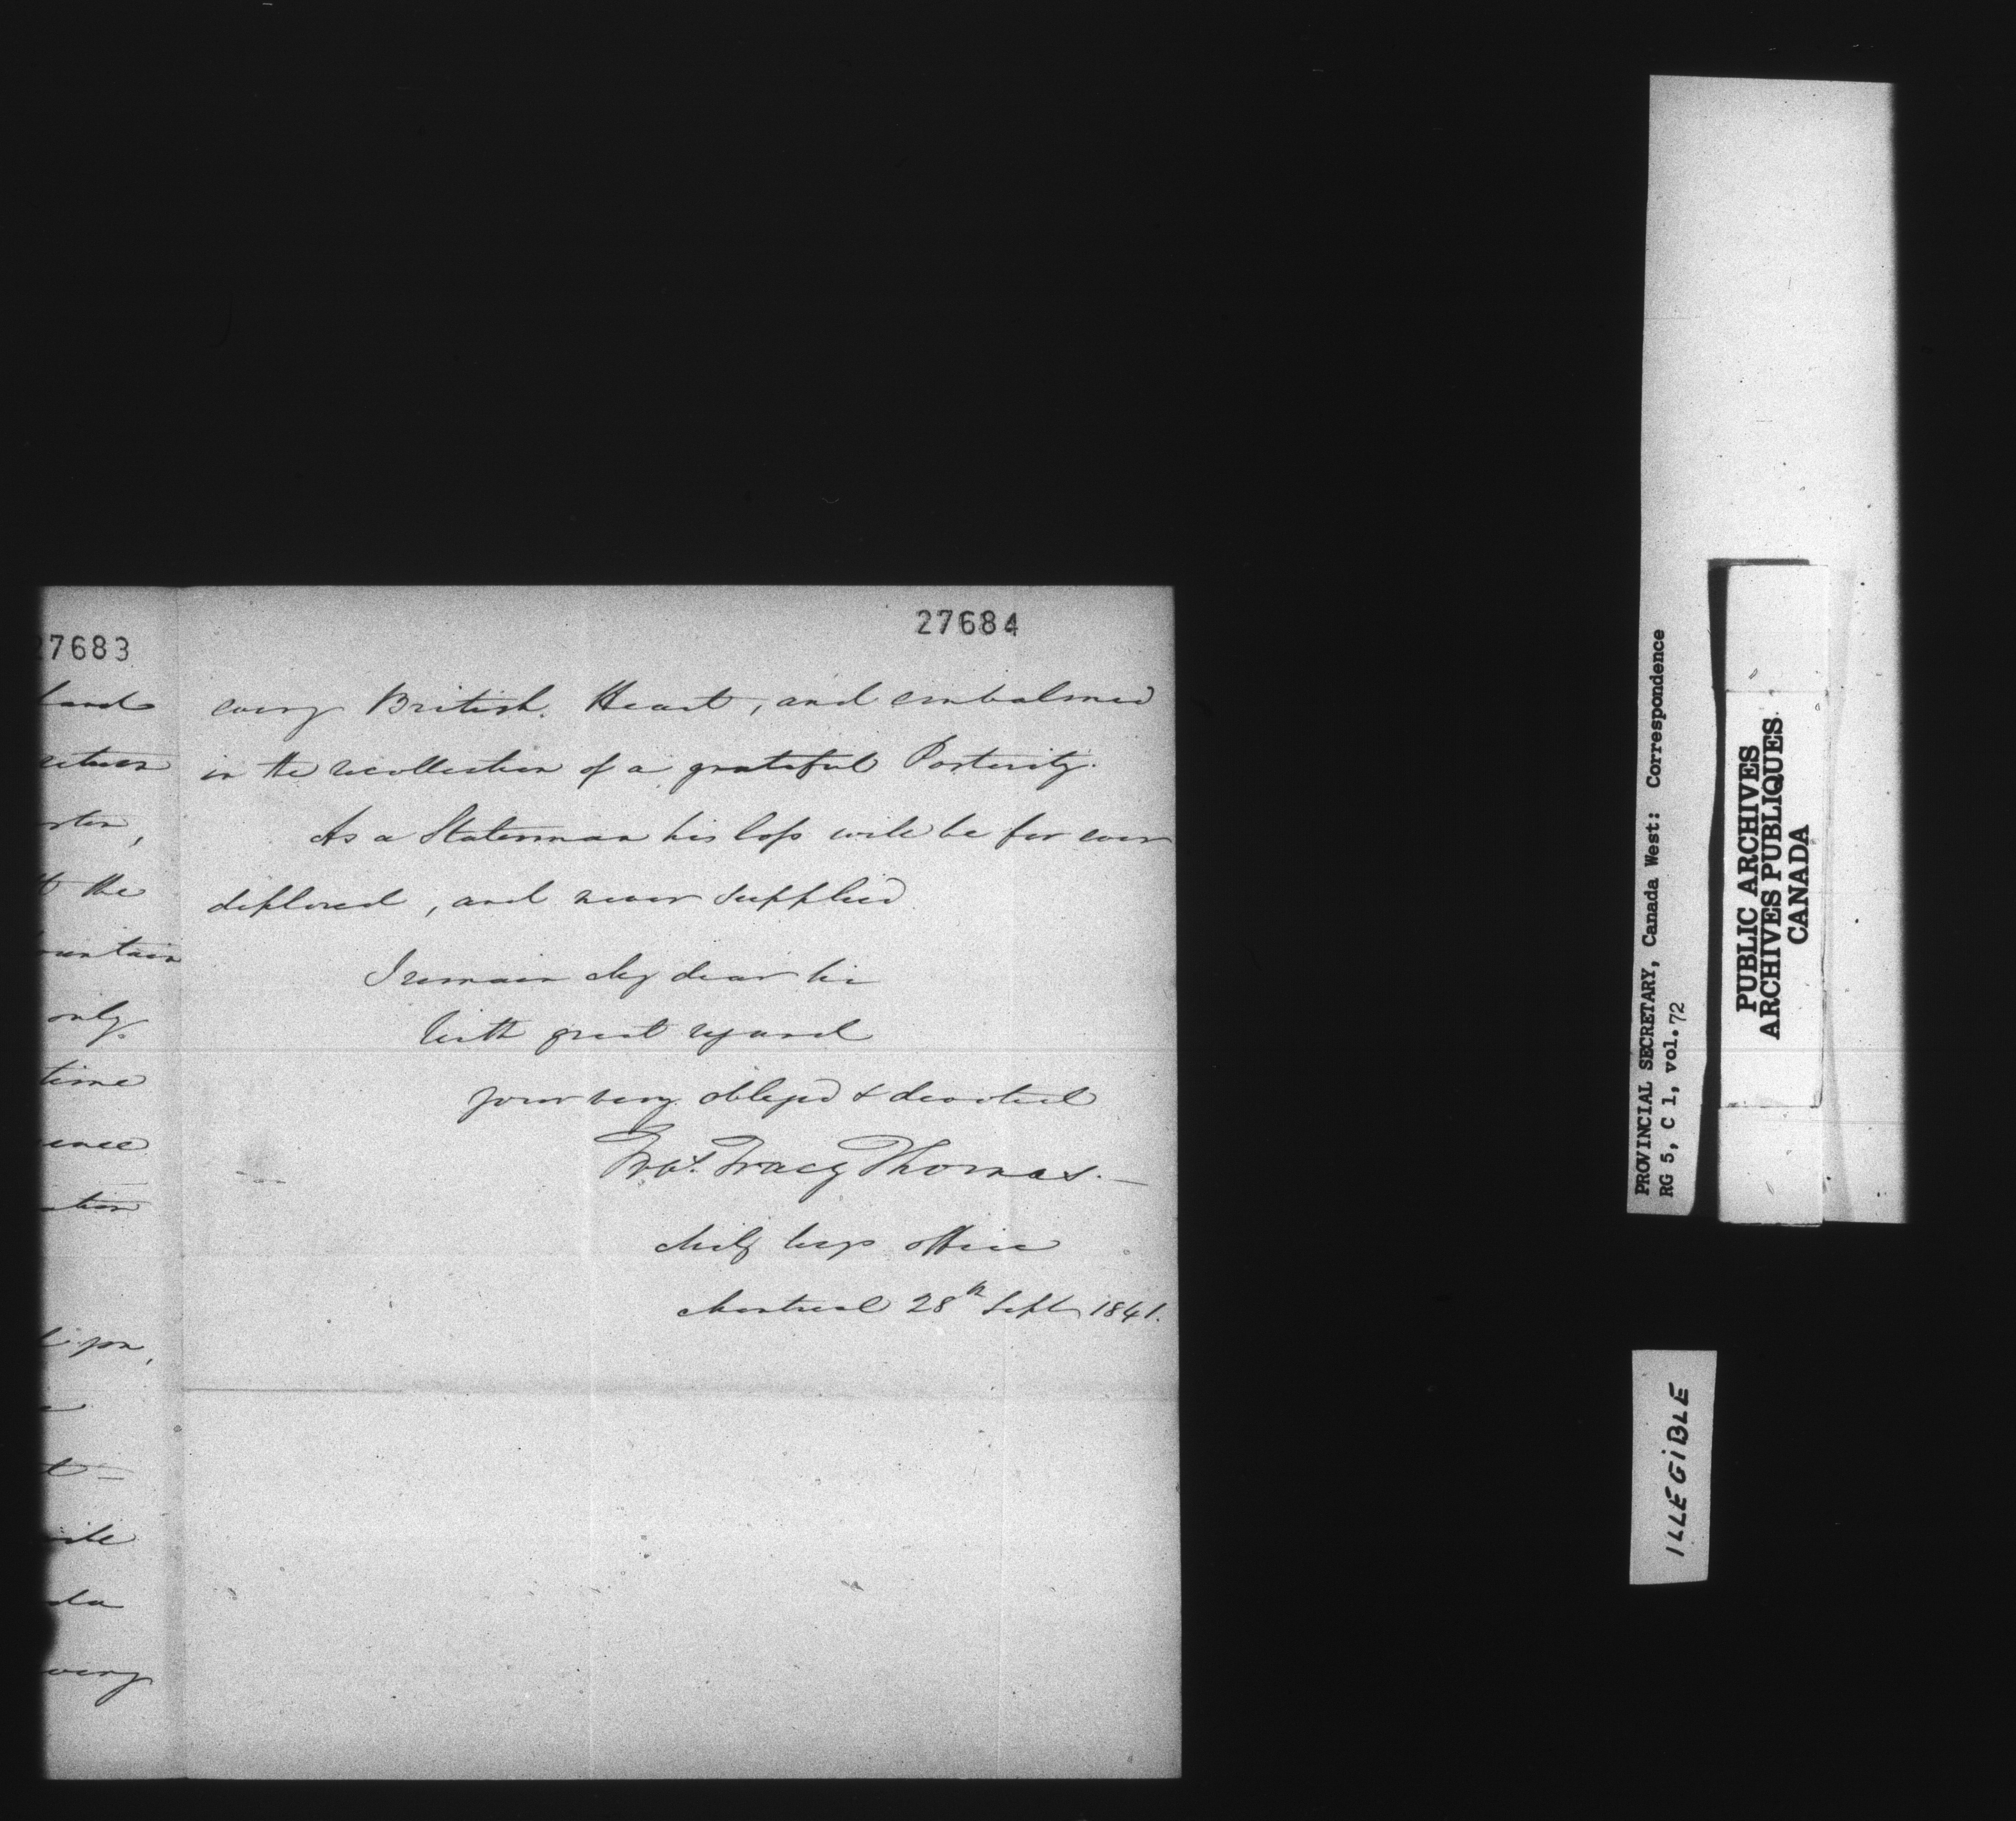 27683
land
return
the
only
time
27684
every British Heart, and embalmed
in the recollection of a grateful Posterity.
As a Statesman his loss will be for ever
deplored, and never supplied
I remain My dear Sir
With great regard
your very obliged & devoted
Tracy Thomas.
office
Montreal 28th Sept 1841.
PROVINCIAL SECRETARY, Canada West: Correspondence
RG 5, C 1, vol. 72
PUBLIC ARCHIVES
ARCHIVES PUBLIQUES
CANADA
ILLEGIBLE